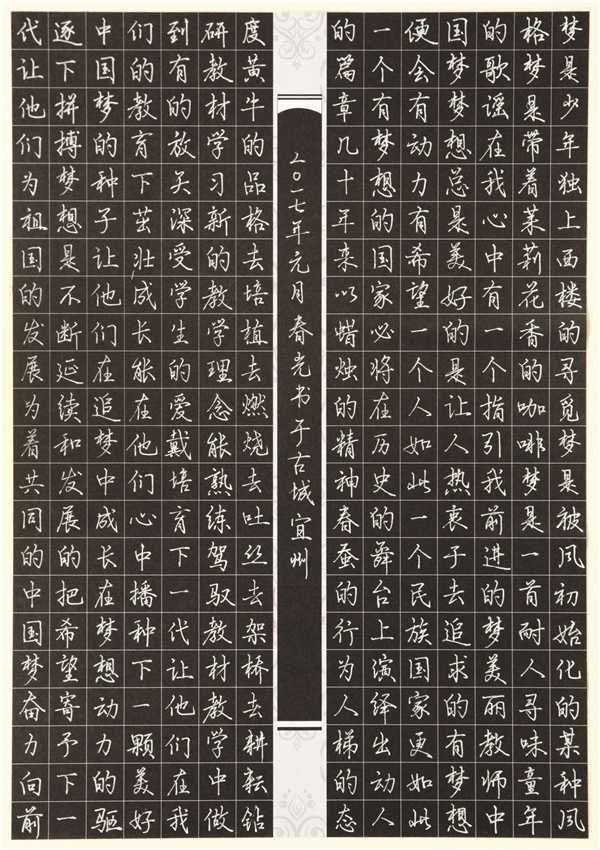 梦是少年独上西楼的寻觅梦是被风初始化的某种风
格梦是带着茉莉花香的咖啡梦是一首耐人寻味童年
的歌谣在我心中有一个指引我前进的梦美丽教师中
国梦梦想总是美好的是让人热衷于去追求的有梦想
便会有动力有希望一个人如此一个民族国家更如此
一个有梦想的国家必将在历史的舞台上演绎出动人
的篇章几十年来以蜡烛的精神春蚕的行为人梯的态
二〇一七年元月春光书于古城宜州
度黄牛的品格去培植去燃烧去吐丝去架桥去耕耘钻
研教材学习新的教学理念能熟练驾驭教材教学中做
到有的放矢深受学生的爱戴培育下一代让他们在我
们的教育下茁壮成长能在他们心中播种下一颗美好
中国梦的种子让他们在追梦中成长在梦想动力的驱
逐下拼搏梦想是不断延续和发展的把希望寄予下一
代让他们为祖国的发展为着共同的中国梦奋力向前